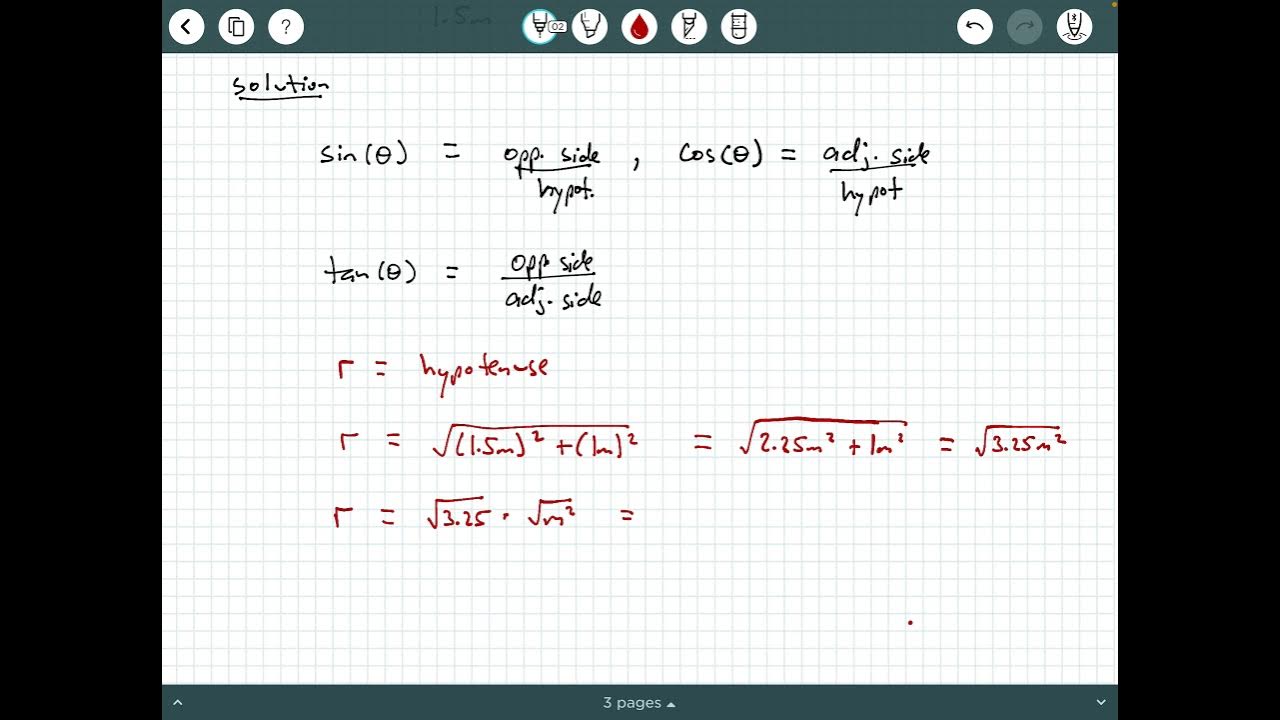 1.5m
?
02
solution
sin(θ) = opp. side / hypot. , cos(θ) = adj. side / hypot
tan(θ) = opp side / adj. side
r = hypotenuse
r = √(1.5m)² + (1m)² = √2.25m² + 1m² = √3.25m²
r = √3.25 · √m² =
3 pages